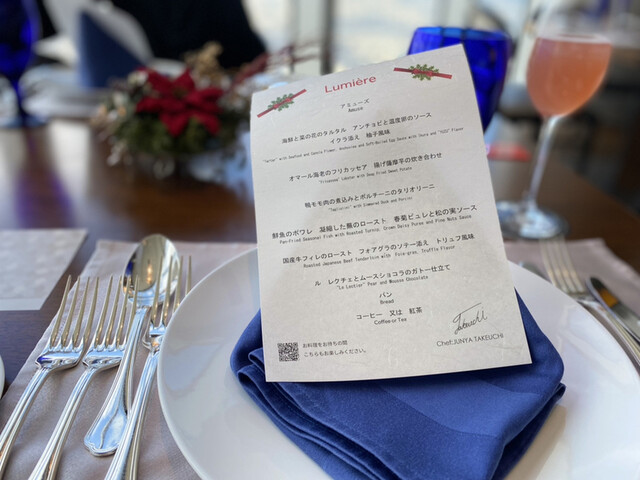 Lumière
アミューズ
Amuse
海鮮と菜の花のタルタル アンチョビと温度卵のソース
イクラ添え 柚子風味
with Seafood and Canola Flower, Anchovies and Soft-Boiled Egg Sauce with Ikura and "YUZU" Flavor
オマール海老のフリカッセア 揚げ薩摩芋の炊き合わせ
"Fricassea" Lobster with Deep Fried Sweet Potato
鴨モモ肉の煮込みとポルチーニのタリオリーニ
"Tagliolini" with Simmered Duck and Porcini
鮮魚のポワレ 凝縮した蕪のロースト 春菊ピュレと松の実ソース
Pan-Fried Seasonal Fish with Roasted Turnip, Crown Daisy Puree and Pine Nuts Sauce
国産牛フィレのロースト フォアグラのソテー添え トリュフ風味
Roasted Japanese Beef Tenderloin with Foie-gras, Truffle Flavor
ル レクチェとムースショコラのガトー仕立て
"Le Lectier" Pear and Mousse Chocolate
パン
Bread
コーヒー 又は 紅茶
Coffee or Tea
お料理をお待ちの間
こちらもお楽しみください。
Takeuchi
Chef:JUNYA TAKEUCHI